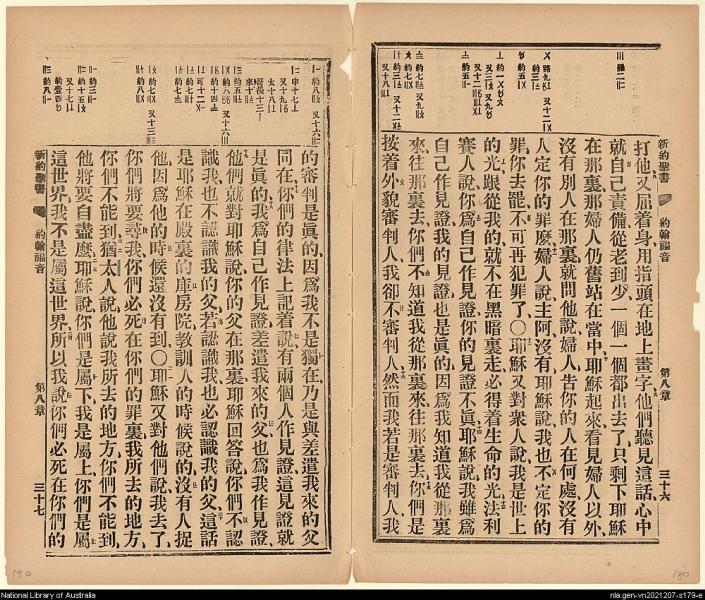 新約聖書
約翰福音
第八章
三十六
打他又屈着身用指頭在地上畫字他們聽見這話心中
就自己責備從老到少一個一個都出去了只剩下耶穌
在那裏那婦人仍舊站在當中耶穌起來看見婦人以外
沒有別人在那裏就問他說婦人告你的人在何處沒有
人定你的罪麽婦人說主阿沒有耶穌說我也不定你的
罪你去罷不可再犯罪了〇耶穌又對衆人說我是世上
的光跟從我的就不在黑暗裏走必得着生命的光法利
賽人說你爲自己作見證你的見證不眞耶穌說我雖爲
自己作見證我的見證也是眞的因爲我知道我從那裏
來往那裏去你們不知道我從那裏來往那裏去你們是
按着外貌審判人我卻不審判人然而我若是審判人我
的審判是眞的因爲我不是獨在乃是與差遣我來的父
同在你們的律法上記着說有兩個人作見證這見證就
是眞的我爲自己作見證差遣我來的父也爲我作見證
他們就對耶穌說你的父在那裏耶穌回答說你們不認
識我也不認識我的父若認識我也必認識我的父這話
是耶穌在殿裏的庫房院教訓人的時候說的沒有人捉
他因爲他的時候還沒有到〇耶穌又對他們說我去了
你們將要尋我你們必死在你們的罪裏我所去的地方
你們不能到猶太人說他說我所去的地方你們不能到
他將要自盡麽耶穌說你們是屬下我是屬上你們是屬
這世界我不是屬這世界所以我說你們必死在你們的
新約聖書
約翰福音
第八章
三十七
190
180
National Library of Australia
nla.gen-vn2021207-s179-e